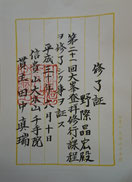 修了証
野際晶宏殿
第二十一回大峯登拝修行課程
ヲ修了シタ事ヲ証ス
平成二十年六月十日
信貴山大本山千手院
貫主田中真瑞